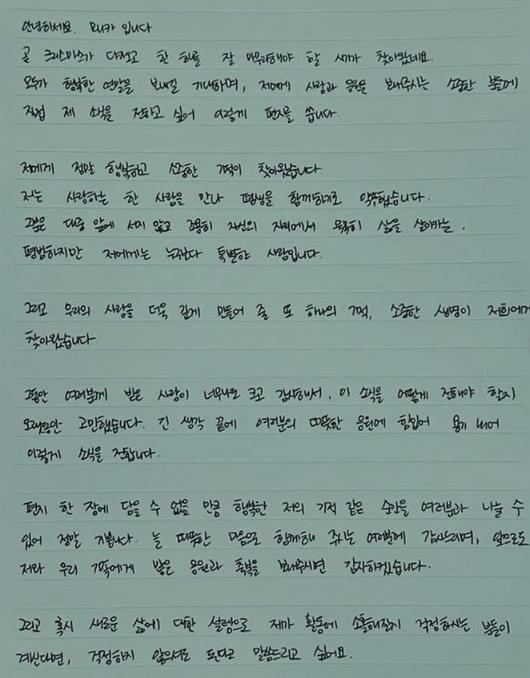 안녕하세요. 모니카 입니다.
곧 크리스마스가 다가오고 한 해를 잘 마무리해야 할 시기가 찾아왔네요.
모두가 행복한 연말을 보내길 기대하며, 저에게 사랑과 응원을 보내주시는 소중한 분들께
직접 제 소식을 전하고 싶어 이렇게 편지를 씁니다.
저에게 정말 행복하고 소중한 기적이 찾아왔습니다.
저는 사랑하는 한 사람을 만나 평생을 함께하기로 약속했습니다.
그분은 대중 앞에 서지 않고 조용히 자신의 자리에서 묵묵히 삶을 살아가는,
평범하지만 저에게는 누구보다 특별한 사람입니다.
그리고 우리의 사랑을 더욱 깊게 만들어 줄 또 하나의 기적, 소중한 생명이 저희에게
찾아왔습니다
그동안 여러분께 받은 사랑이 너무나도 크고 감사해서, 이 소식을 어떻게 전해야 할지
오랫동안 고민했습니다. 긴 생각 끝에 여러분의 따뜻한 응원에 힘입어 용기 내어
이렇게 소식을 전합니다.
편지 한 장에 담을 수 없을 만큼 행복한 저의 기적 같은 순간을 여러분과 나눌 수
있어 정말 기쁩니다. 늘 따뜻한 마음으로 함께해 주시는 여러분께 감사드리며, 앞으로도
저와 우리 가족에게 많은 응원과 축복을 보내주시면 감사하겠습니다.
그리고 혹시 새로운 삶에 대한 설렘으로 제가 활동에 소홀해질지 걱정하시는 분들이
계신다면, 걱정하지 않으셔도 된다고 말씀드리고 싶어요.